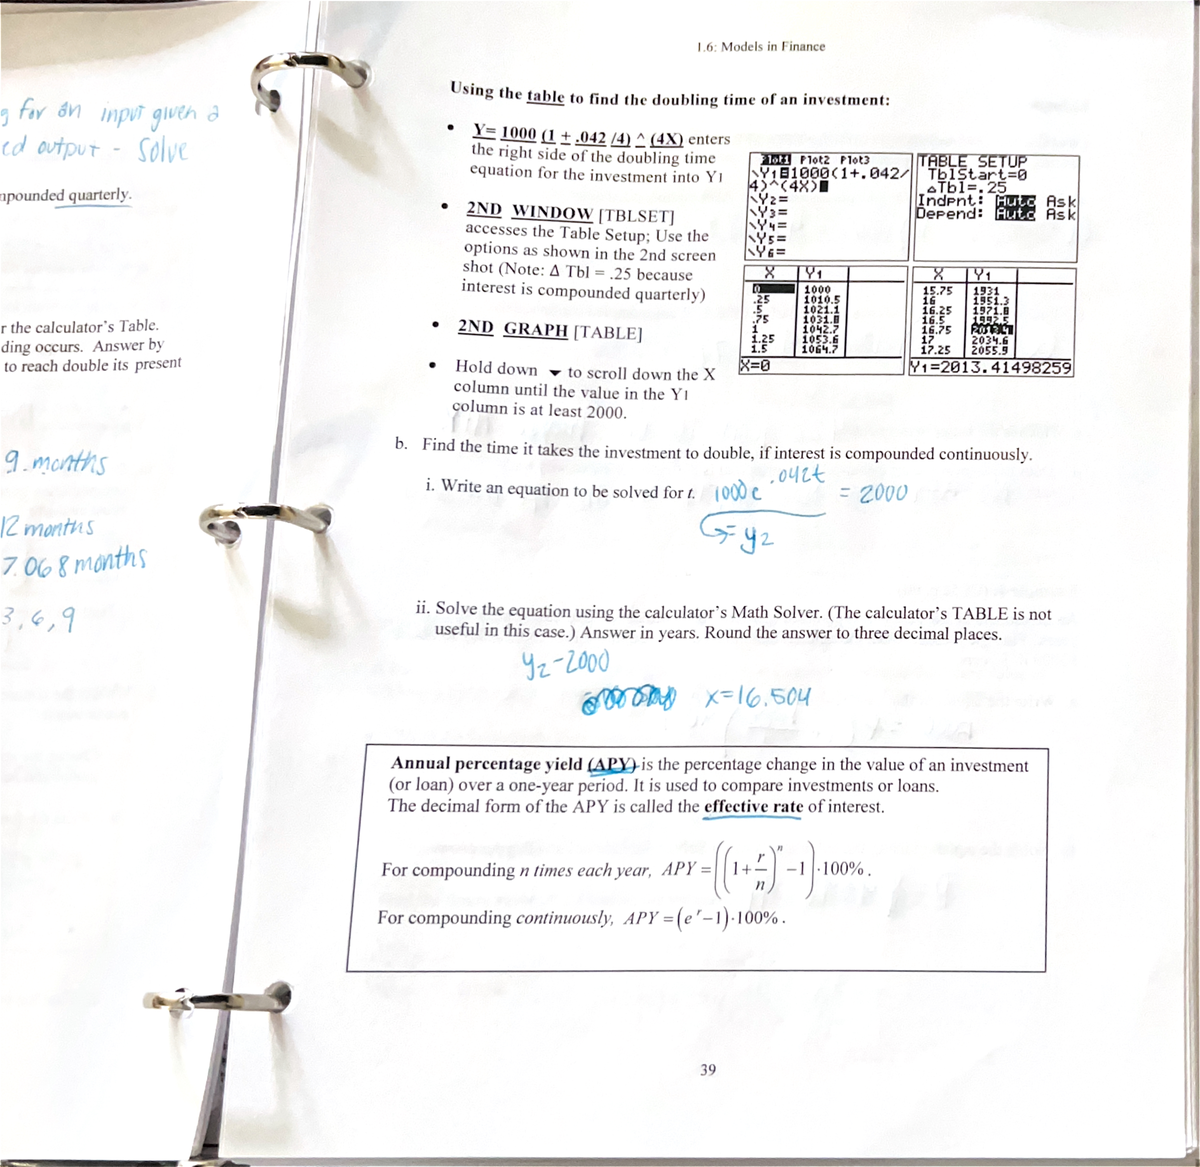 g for an input given a
ed output - solve
mpounded quarterly.
r the calculator's Table.
ding occurs. Answer by
to reach double its present
9. months
12 months
7.068 months
3, 6, 9
1.6: Models in Finance
Using the table to find the doubling time of an investment:
• Y= 1000 (1 + .042 /4) ^ (4X) enters
the right side of the doubling time
equation for the investment into Y1
• 2ND WINDOW [TBLSET]
accesses the Table Setup; Use the
options as shown in the 2nd screen
shot (Note: Δ Tbl = .25 because
interest is compounded quarterly)
• 2ND GRAPH [TABLE]
• Hold down ▼ to scroll down the X
column until the value in the Y1
column is at least 2000.
Plot1 Plot2 Plot3
\Y1=1000(1+.042/
4)^(4X)
\Y2=
\Y3=
\Y4=
\Y5=
\Y6=
TABLE SETUP
TblStart=0
ΔTbl=.25
Indpnt: Auto Ask
Depend: Auto Ask
X Y1
0 1000
.25 1010.5
.5 1021.1
.75 1031.8
1 1042.7
1.25 1053.6
1.5 1064.7
X=0
X Y1
15.75 1931
16 1951.3
16.25 1971.8
16.5 1992.5
16.75 2013.4
17 2034.6
17.25 2055.9
Y1=2013.41498259
b. Find the time it takes the investment to double, if interest is compounded continuously.
i. Write an equation to be solved for t. 1000e^.042t = 2000
= y2
ii. Solve the equation using the calculator's Math Solver. (The calculator's TABLE is not
useful in this case.) Answer in years. Round the answer to three decimal places.
y2-2000
x=16.504
Annual percentage yield (APY) is the percentage change in the value of an investment
(or loan) over a one-year period. It is used to compare investments or loans.
The decimal form of the APY is called the effective rate of interest.
For compounding n times each year, APY = ((1+r/n)^n −1)·100%.
For compounding continuously, APY = (e^r −1)·100%.
39